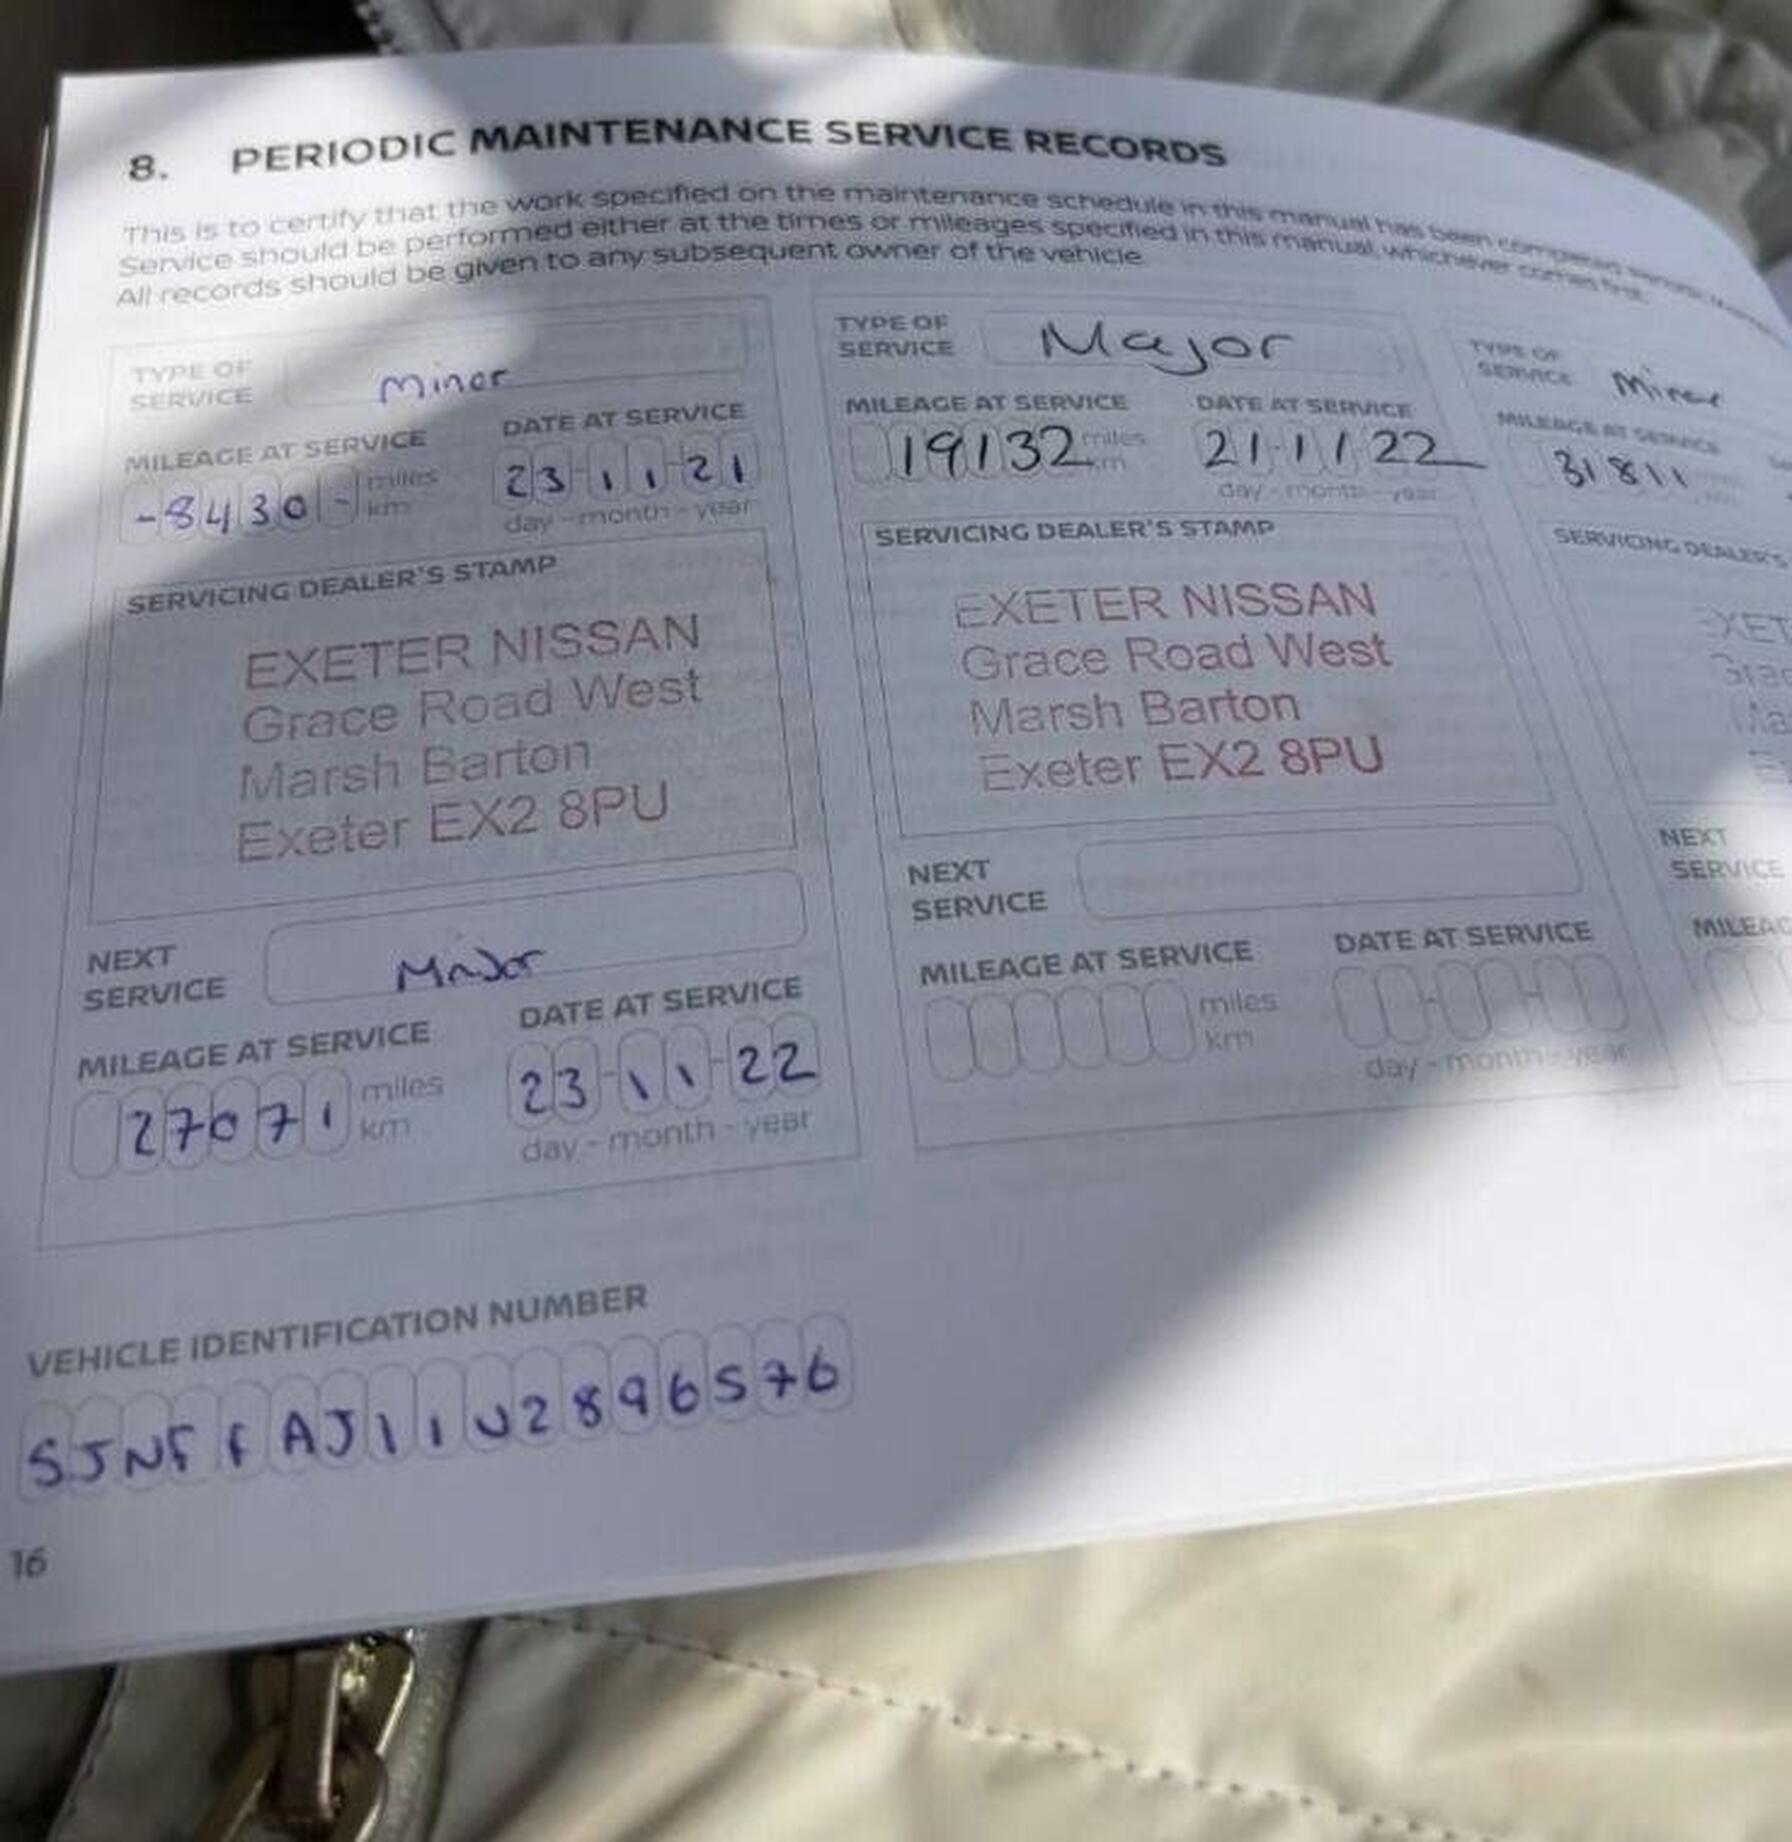 8. PERIODIC MAINTENANCE SERVICE RECORDS
This is to certify that the work specified on the maintenance schedule in this manual has been completed
Service should be performed either at the times or mileages specified in this manual, whichever comes first.
All records should be given to any subsequent owner of the vehicle
TYPE OF
SERVICE
Minor
MILEAGE AT SERVICE
DATE AT SERVICE
-8430- miles
km
23-11-21
day - month - year
SERVICING DEALER'S STAMP
EXETER NISSAN
Grace Road West
Marsh Barton
Exeter EX2 8PU
NEXT
SERVICE
Major
MILEAGE AT SERVICE
DATE AT SERVICE
27071 miles
km
23-11-22
day - month - year
TYPE OF
SERVICE
Major
MILEAGE AT SERVICE
DATE AT SERVICE
19132 miles
km
21-11 22
day - month - year
SERVICING DEALER'S STAMP
EXETER NISSAN
Grace Road West
Marsh Barton
Exeter EX2 8PU
NEXT
SERVICE
MILEAGE AT SERVICE
DATE AT SERVICE
miles
km
day - month - year
TYPE OF
SERVICE
Minor
MILEAGE AT SERVICE
31811
SERVICING DEALER'S
EXET
Grac
Ma
Ex
NEXT
SERVICE
MILEAG
VEHICLE IDENTIFICATION NUMBER
SJNFFAJ11U2896576
16